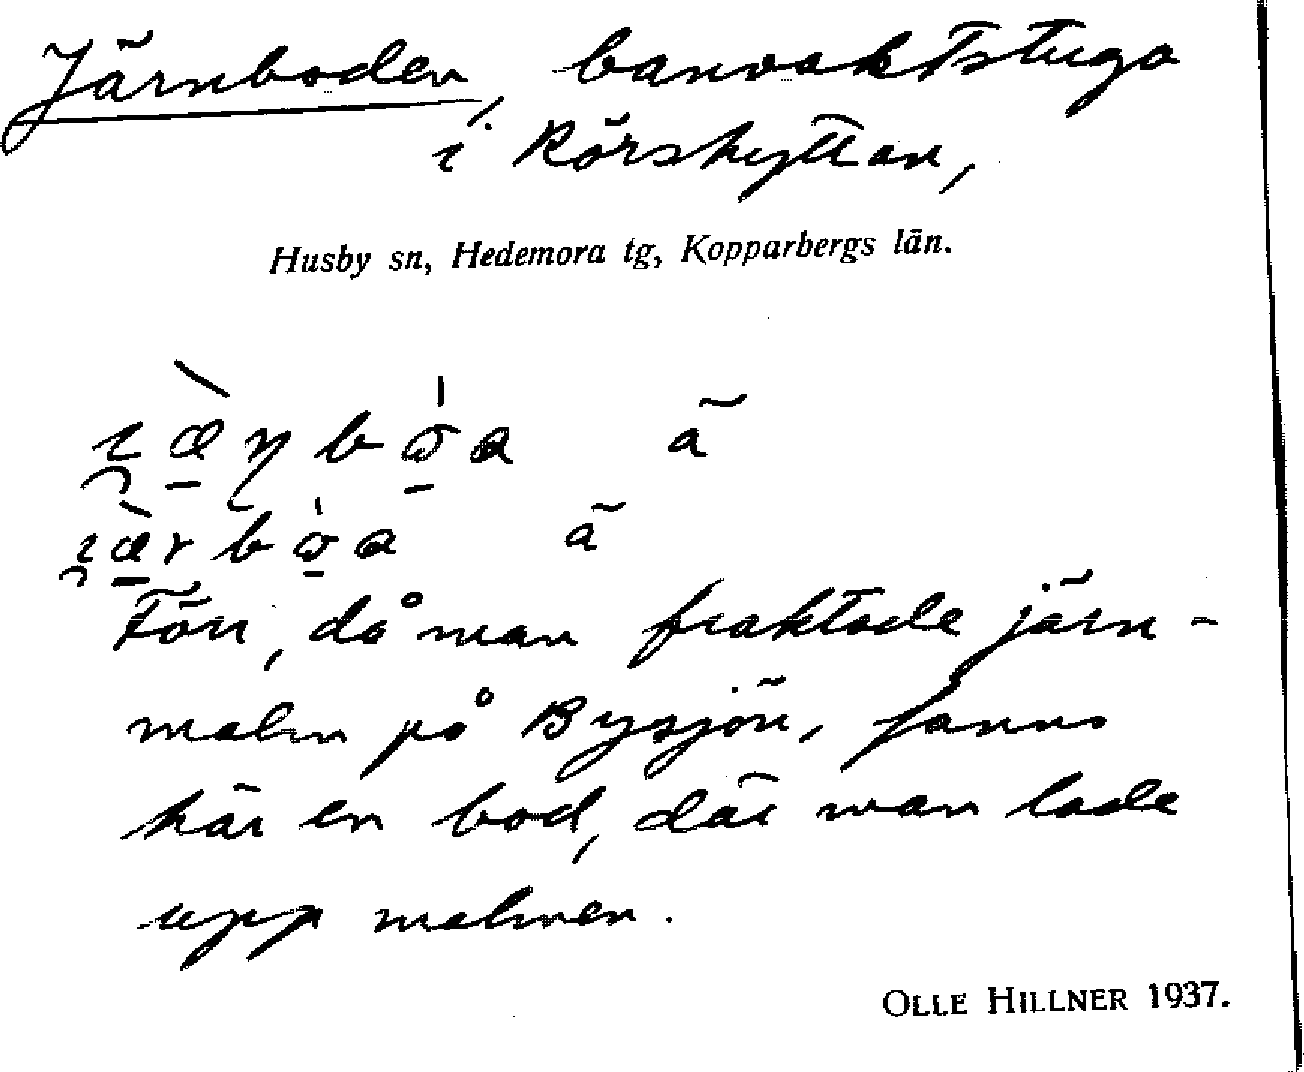 Järnboden, banvaktstuga
i Rörshyttan,
Husby sn, Hedemora tg, Kopparbergs län.
ã
ã
Förr, då man fraktade järn-
malm på Bysjön, fanns
här en bod, där man lade
upp malmen.
OLLE HILLNER 1937.